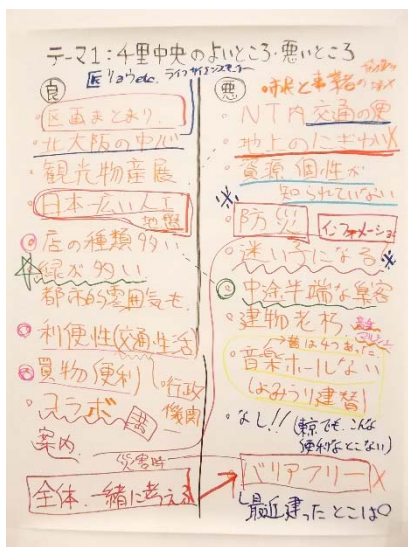 テーマ1：千里中央のよいところ・悪いところ
医りょうetc. ライフサイエンスセンター
良
・区画まとまり
・北大阪の中心
・観光物産展
・日本一広い人工
地盤
・店の種類多い
・緑が多い
都市的雰囲気も
・利便性(交通・生活)
・買物便利
・行政
機関
・コラボ
案内
災害時
全体、一緒に考える
悪
・市民と事業者の
・NT内交通の悪
・地上のにぎわいX
・資源、個性が
知られていない
・防災
インフォメーション
・迷い子になる
・中途半端な集客
・建物老朽
昔は4つあった
・音楽ホールない
(よみうり建替)
・なし!!(東京でも、こんな
便利なとこない)
・バリアフリーX
最近建ったとこは○